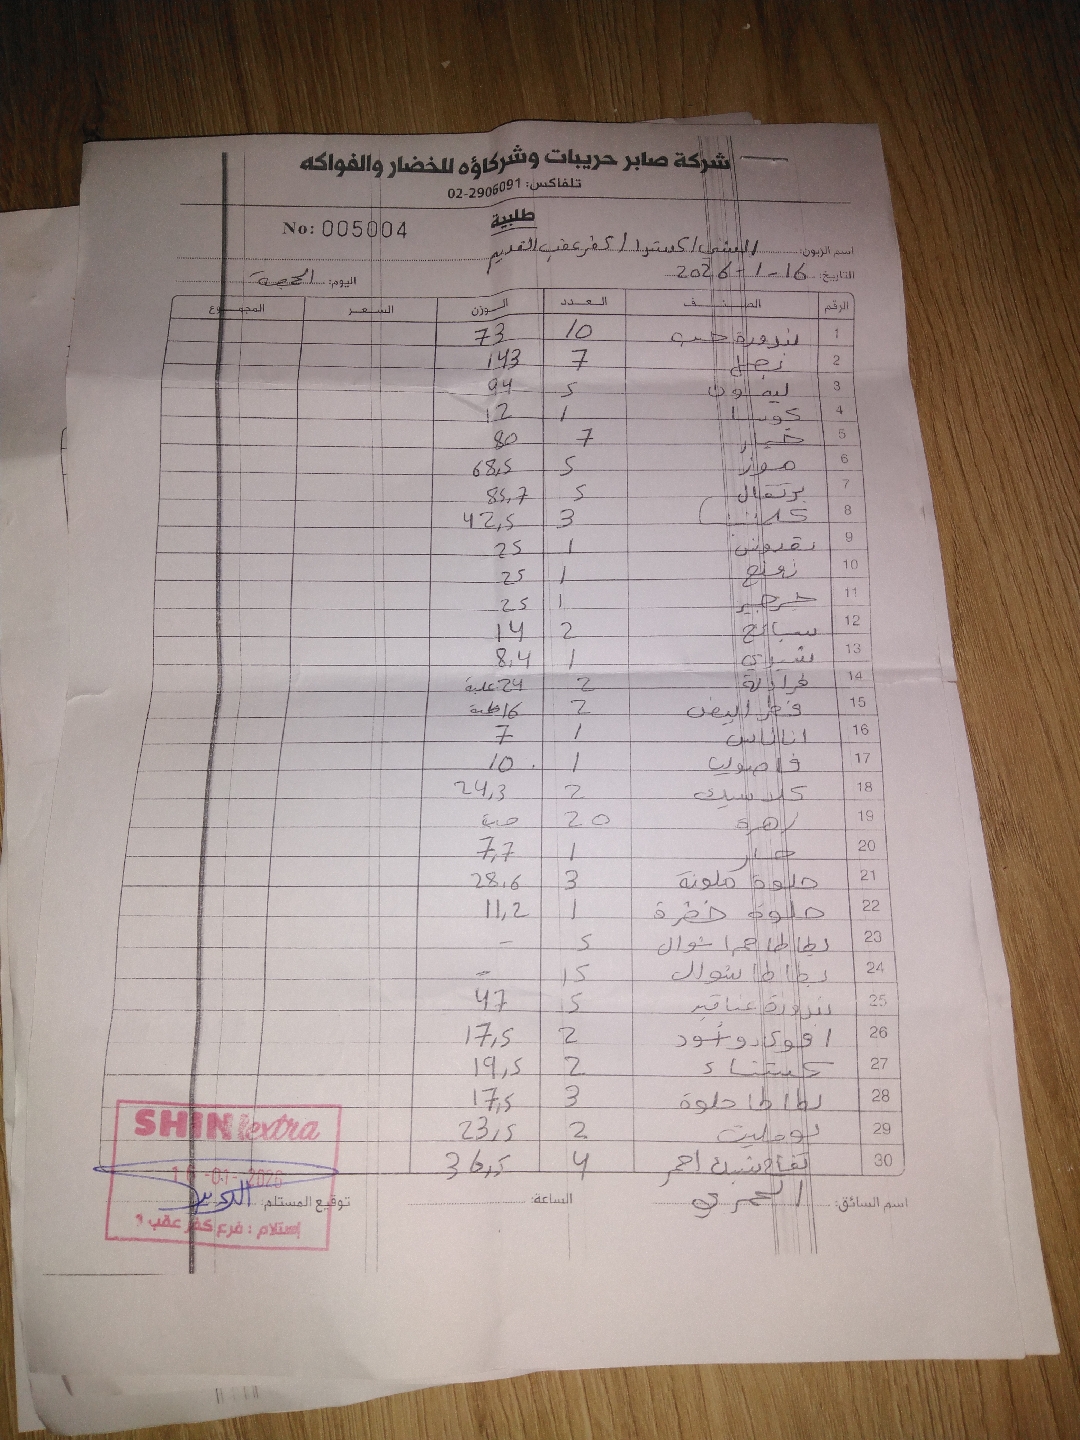 شركة صابر حريبات وشركاؤه للخضار والفواكه
تلفاكس: 02-2906091
طلبية
No: 005004
اسم الزبون: الشني / اكسترا / كفر عقب القديم
التاريخ: 16-1-2026
اليوم: الجمعة
الرقم الصنف العدد الوزن السعر المجموع
1 بندورة حب 10 73
2 بصل 7 143
3 ليمون 5 94
4 كوسا 1 12
5 خيار 7 80
6 موز 5 68,5
7 برتقال 5 85,7
8 كلمنتينا 3 42,5
9 بقدونس 1 25
10 نعنع 1 25
11 جرجير 1 25
12 سبانخ 2 14
13 شيري 1 8,4
14 فراولة 2 24 علبة
15 فطر ابيض 2 16 علبة
16 اناناس 1 7
17 فاصوليا 1 10
18 كلاسيك 2 24,3
19 زهرة 20 حبة
20 حار 1 7,7
21 حلوة ملونة 3 28,6
22 حلوة خضرة 1 11,2
23 بطاطا حمرا شوال 5 -
24 بطاطا شوال 15 -
25 بندورة عناقيد 5 47
26 افوكادو أسود 2 17,5
27 كستناء 2 19,5
28 بطاطا حلوة 3 17,5
29 بومليت 2 23,5
30 تفاح شبك احمر 4 36,5
اسم السائق: العمري
الساعة:
توقيع المستلم:
SHINI extra
16-01-2026
إستلام: فرع كفر عقب